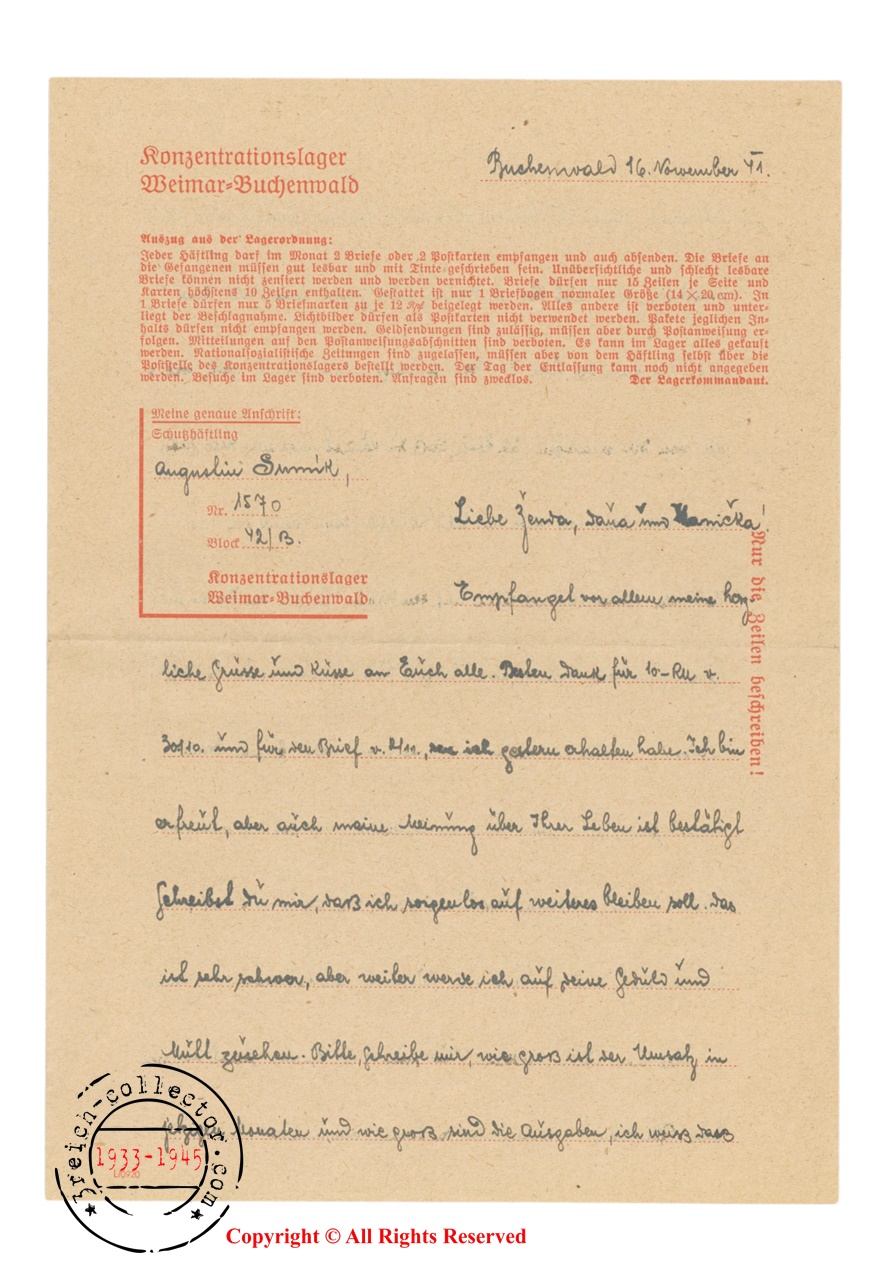 Konzentrationslager
Weimar-Buchenwald
Buchenwald 16. November 41.
Auszug aus der Lagerordnung:
Jeder Häftling darf im Monat 2 Briefe oder 2 Postkarten empfangen und auch absenden. Die Briefe an
die Gefangenen müssen gut lesbar und mit Tinte geschrieben sein. Unübersichtliche und schlecht lesbare
Briefe können nicht zensiert werden und werden vernichtet. Briefe dürfen nur 15 Zeilen je Seite und
Karten höchstens 10 Zeilen enthalten. Gestattet ist nur 1 Briefbogen normaler Größe (14 × 20 cm). In
1 Briefe dürfen nur 5 Briefmarken zu je 12 Rpf beigelegt werden. Alles andere ist verboten und unter-
liegt der Beschlagnahme. Lichtbilder dürfen als Postkarten nicht verwendet werden. Pakete jeglichen In-
halts dürfen nicht empfangen werden. Geldsendungen sind zulässig, müssen aber durch Postanweisung er-
folgen. Mitteilungen auf den Postanweisungsabschnitten sind verboten. Es kann im Lager alles gekauft
werden. Nationalsozialistische Zeitungen sind zugelassen, müssen aber von dem Häftling selbst über die
Poststelle des Konzentrationslagers bestellt werden. Der Tag der Entlassung kann noch nicht angegeben
werden. Besuche im Lager sind verboten. Anfragen sind zwecklos. Der Lagerkommandant.
Meine genaue Anschrift:
Schutzhäftling
Augustin
Nr. 1570
Block 42/B.
Konzentrationslager
Weimar-Buchenwald
Nur die Zeilen beschreiben!
Liebe Ženda, Daňa und Hanička!
Empfanget vor allem meine herz-
liche Grüsse und Küsse an Euch alle. Besten Dank für 10-RM v.
30/10. und für den Brief v. 2/11., ich gestern erhalten habe. Ich bin
erfreut, aber auch meine Meinung über Ihrer Leben ist bestätigt
Schreibst du mir, daß ich sorgenlos auf weiteres bleiben soll. das
ist sehr schwer, aber weiter werde ich auf deine Geduld und
zusehen. Bitte, schreibe mir, wie groß ist der Umsatz in
Monaten und wie groß sind die Ausgaben, ich weiß dass
3reich-collector.com
1933-1945
Copyright © All Rights Reserved